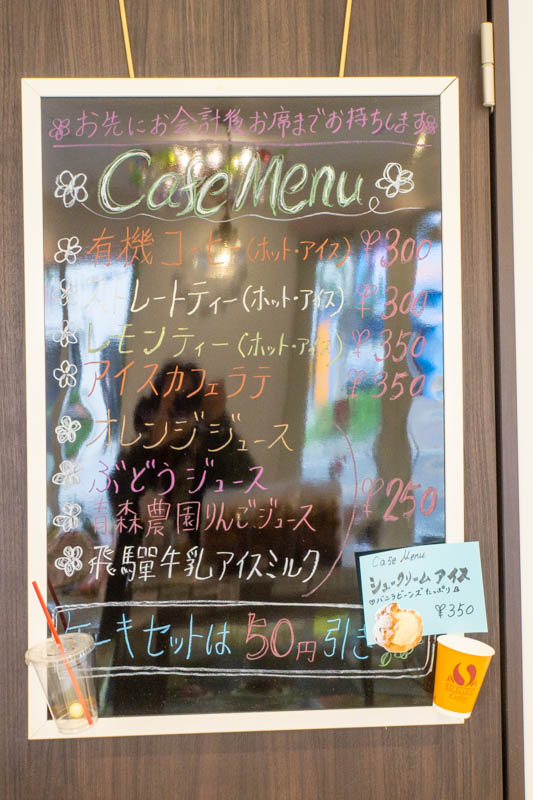 お先にお会計後お席までお持ちします
Cafe Menu
有機コーヒー(ホット・アイス) ¥300
ストレートティー(ホット・アイス) ¥300
レモンティー(ホット・アイス) ¥350
アイスカフェラテ ¥350
オレンジジュース
ぶどうジュース
青森農園りんごジュース
飛騨牛乳アイスミルク
¥250
ケーキセットは50円引き
Cafe Menu
シュークリームアイス
♡バニラビーンズたっぷり
¥350